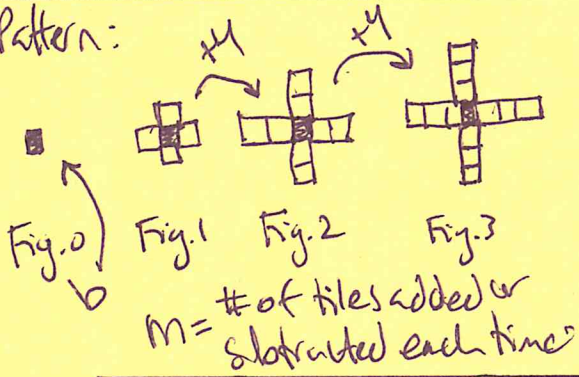 Pattern:
+4 +4
Fig.0 Fig.1 Fig.2 Fig.3
b
m = # of tiles added or
subtracted each time